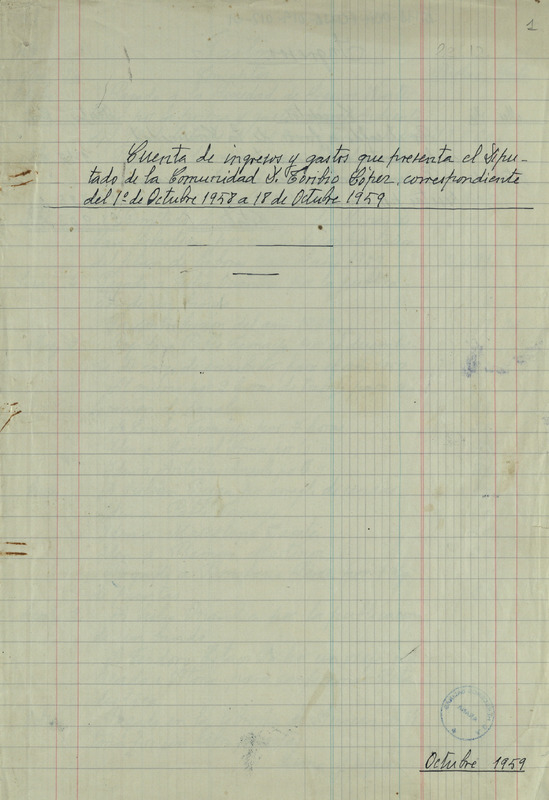 1
Cuenta de ingresos y gastos que presenta el Dipu-
tado de la Comunidad D. Toribio López, correspondiente
del 1º de Octubre 1958 a 18 de Octubre 1959
Octubre 1959